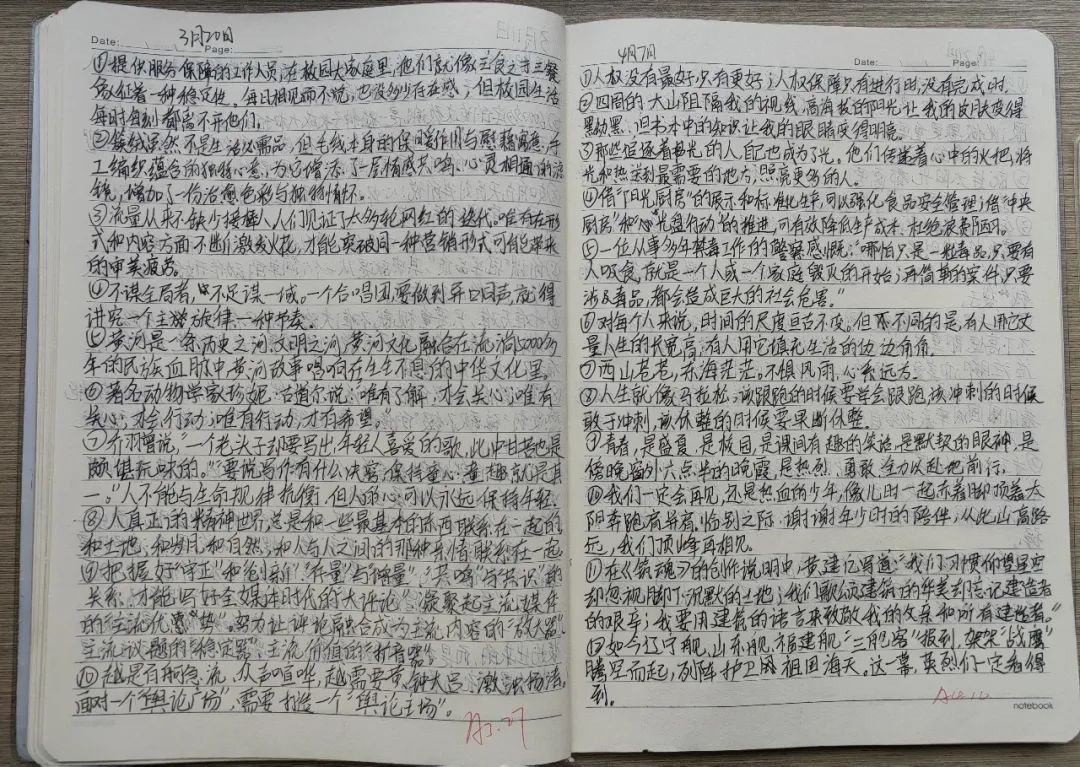 Date:
3月20日
Page:
①提供服务保障的工作人员,在校园大家庭里,他们就像主食之于三餐,
象征着一种稳定性。每日相见而不觉,也没多少存在感,但校园生活
每时每刻都离不开他们。
②绒虽然不是生活必需品,但毛线本身的保暖作用与慰藉寓意,手
工编织蕴含的独特心意,为它增添了一层情感共鸣、心灵相通的滤
镜,增加了一份治愈色彩与独特情怀。
③流量从来不缺少接棒,人们见证了太多轮网红的迭代。唯有在形
式和内容方面不断激发火花,才能突破同一种营销形式可能带来
的审美疲劳。
④不谋全局者,不足谋一域。一个合唱团要做到异口同声,就得
讲究一个主旋律一种节奏。
⑤黄河是一条历史之河、文明之河,黄河文化融合在流淌5000多
年的民族血脉中,黄河故事唱响在生生不息的中华文化里。
⑥著名动物学家珍妮·古道尔说:“唯有了解,才会关心;唯有
关心,才会行动;唯有行动,才有希望。”
⑦乔羽曾说,“一个老头子却要写出年轻人喜爱的歌,此中甘苦也是
颇俱玩味的。”“要说写作有什么诀窍,保持童心、童趣就是其
一。”人不能与生命规律抗衡,但人的心可以永远保持年轻。
⑧人真正的精神世界,总是和一些最基本的东西联系在一起的,
和土地,和岁月,和自然,和人与人之间的那种亲情联系在一起。
⑨把握好“守正”和“创新”、“存量”与“增量”、“共鸣”与“共识”的
关系,才能写好全媒体时代的“大评论”,凝聚起主流媒体
的“主流优势”,努力让评论融合成为主流内容的“放大器”、
主流议题的“稳定器”、主流价值的“扩音器”。
⑩越是百舸急流、众声喧哗,越需要黄钟大吕、激浊扬清。
面对一个“舆论广场”,需要打造一个“舆论主场”。
4月7日
Date:
Page:
①人权没有最好,只有更好;人权保障只有进行时,没有完成时。
②四周的大山阻隔我的视线,高海拔的阳光让我的皮肤变得
黝黑,但书本中的知识让我的眼睛变得明亮。
③那些追逐着极光的人,自己也成为了光。他们传递着心中的火把,将
光和热送到最需要的地方,照亮更多的人。
④借“阳光厨房”的展示和标准化生产,可以强化食品安全管理;借“中央
厨房”和“光盘行动”的推进,可有效降低生产成本、杜绝浪费陋习。
⑤一位从事多年禁毒工作的警察感慨:“哪怕只是一粒毒品,只要有
人吸食,就是一个人或一个家庭毁灭的开始;再简单的案件,只要
涉及毒品,都会造成巨大的社会危害。”
⑥对每个人来说,时间的尺度亘古不变。但不同的是,有人用它丈
量人生的长宽高,有人用它填充生活的边边角角。
⑦西山苍苍,东海茫茫。不惧风雨,心系远方。
⑧人生就像马拉松,该跟跑的时候要学会跟跑,该冲刺的时候
敢于冲刺,该休整的时候要果断休整。
⑨青春,是盛夏,是校园,是课间有趣的笑话,是默契的眼神,是
傍晚窗外六点半的晚霞,是热烈、勇敢、全力以赴地前行。
⑩我们一定会再见,还是热血的少年,像儿时一起赤着脚顶着太
阳奔跑。恰别之际,谢谢年少时的陪伴,从此山高路
远,我们顶峰再相见。
⑪在《镇魂》的创作说明中,黄建亿写道:“我们习惯仰望星空
却忽视脚下沉默的土地;我们歌颂建筑的华美却忘记建造者
的艰辛;我要用建筑的语言来致敬我的父亲和所有建造者。”
⑫如今辽宁舰、山东舰、福建舰“三舰客”报到,架架“战鹰”
腾空而起,列阵护卫祖国海天。这一幕,英烈们一定看得
到。
notebook